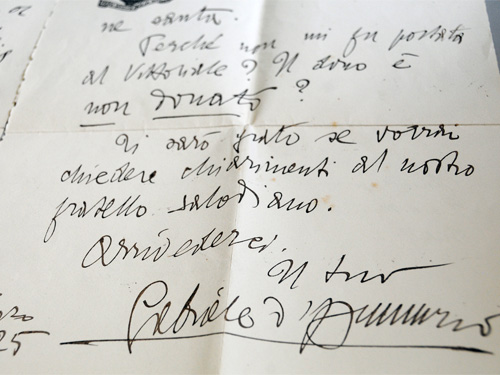 ne santa.
Perché non mi fu portata
al Vittoriale? Il dono è
non donato?
Ti sarò grato se vorrai
chiedere chiarimenti al nostro
fratello salodiano.
Arrivederci.
Il tuo
Gabriele d'Annunzio
25